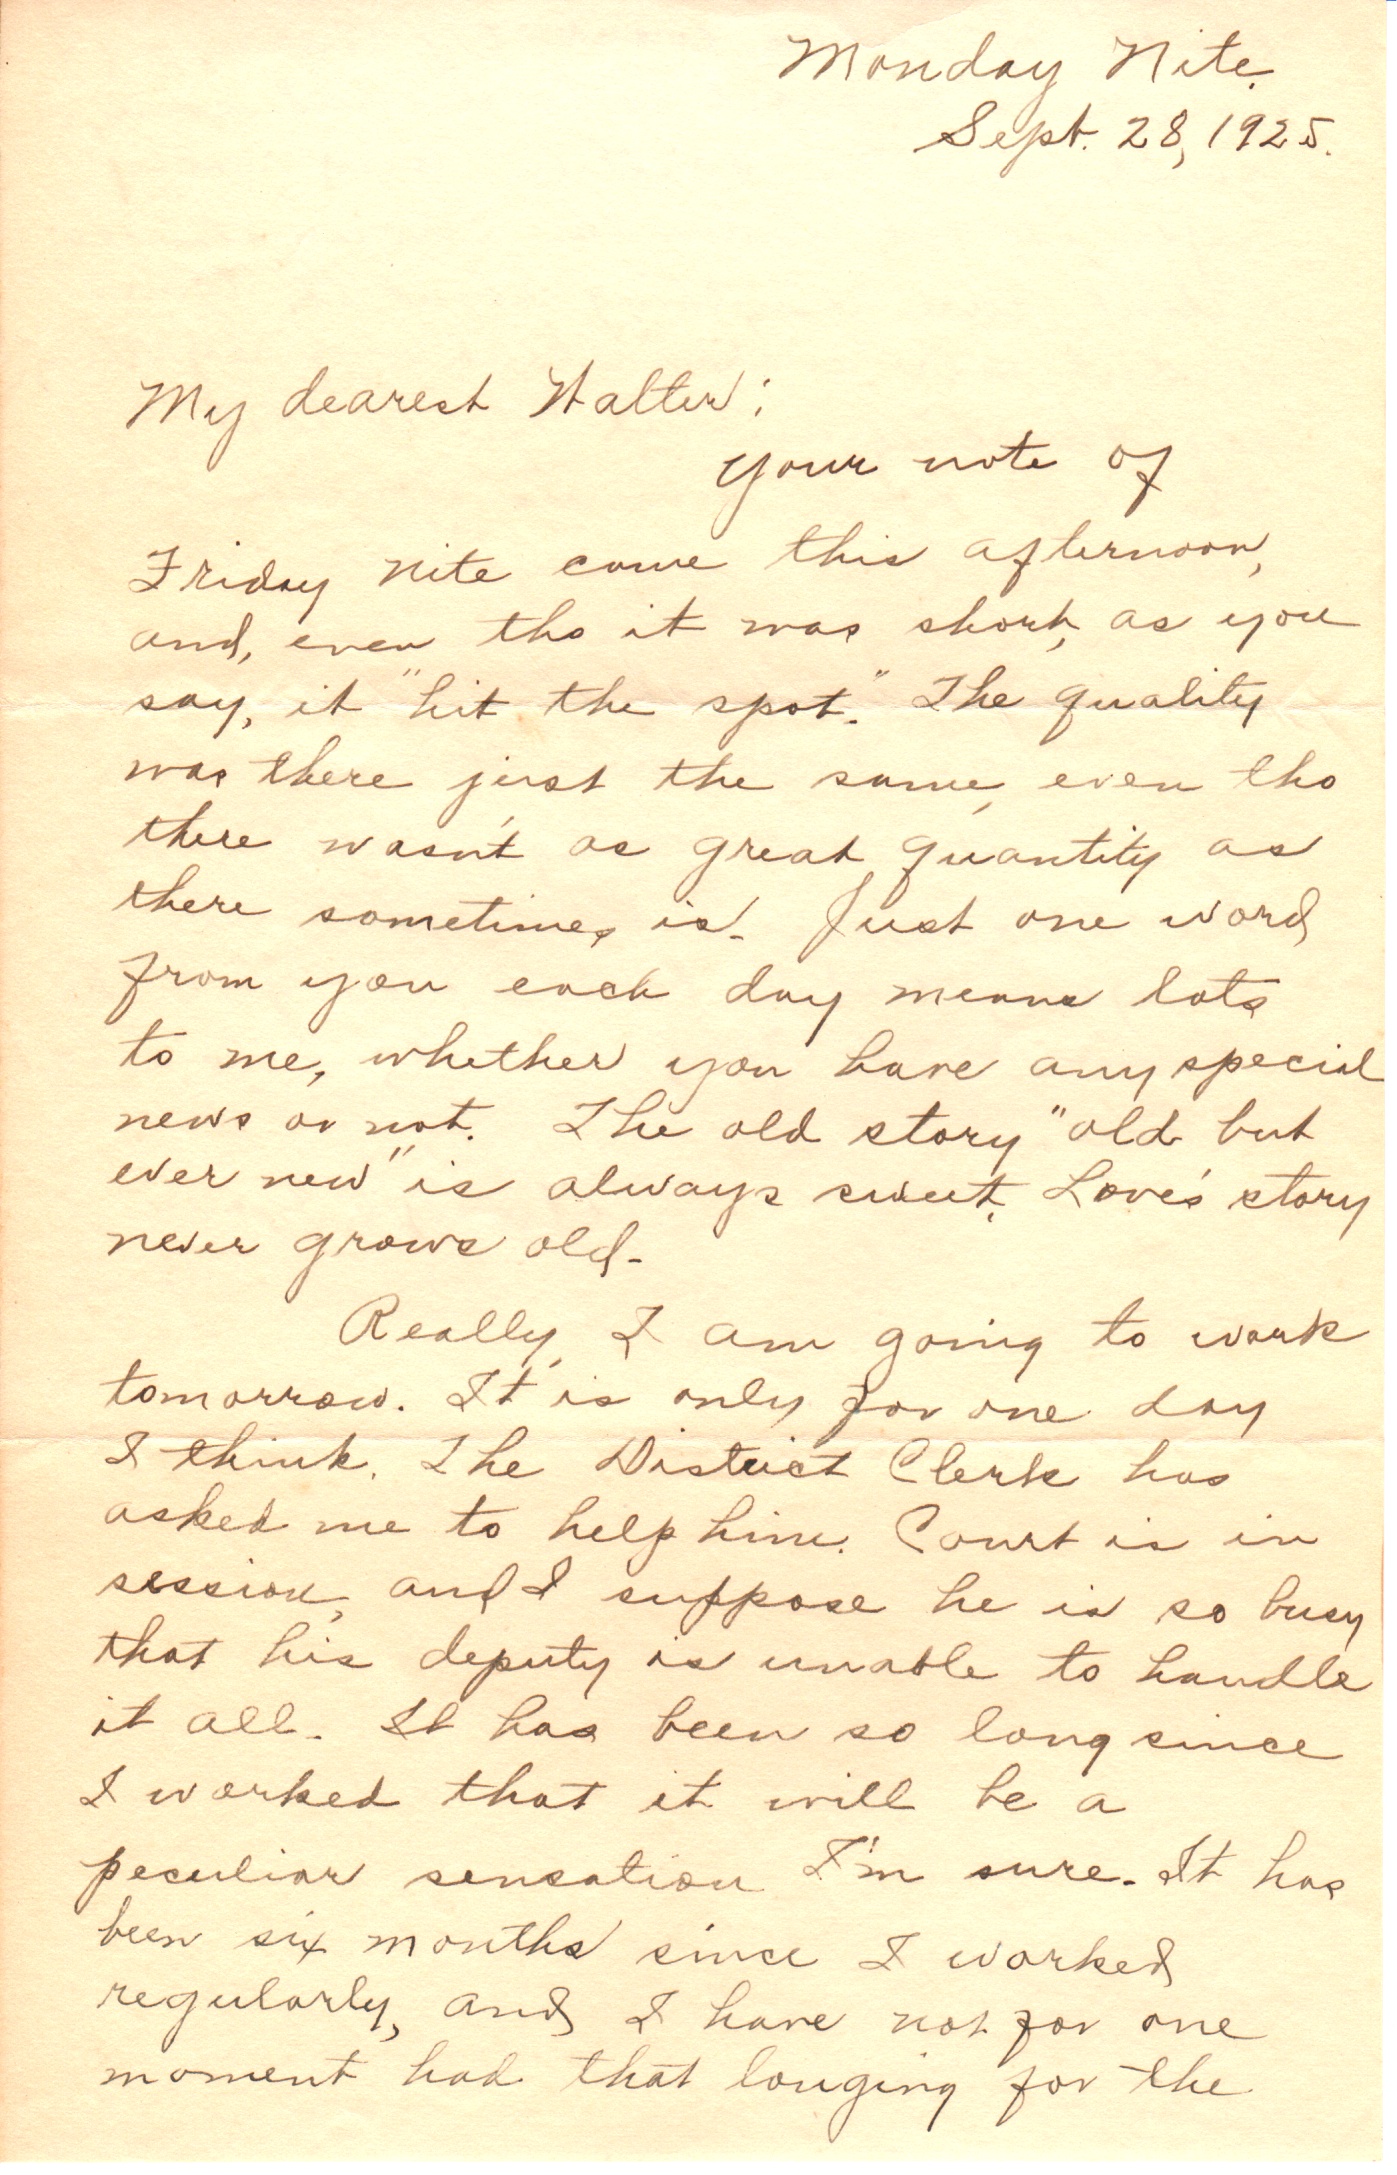 Monday Nite.
Sept. 28, 1925.
My dearest Walter:
Your note of
Friday nite came this afternoon,
and, even tho it was short, as you
say, it "hit the spot." The quality
was there just the same, even tho
there wasn't as great quantity as
there sometimes is. Just one word
from you each day means lots
to me, whether you have any special
news or not. The old story "old but
ever new" is always sweet. Love's story
never grows old.
Really, I am going to work
tomorrow. It is only for one day
I think. The District Clerk has
asked me to help him. Court is in
session, and I suppose he is so busy
that his deputy is unable to handle
it all. It has been so long since
I worked that it will be a
peculiar sensation I'm sure. It has
been six months since I worked
regularly, and I have not for one
moment had that longing for the